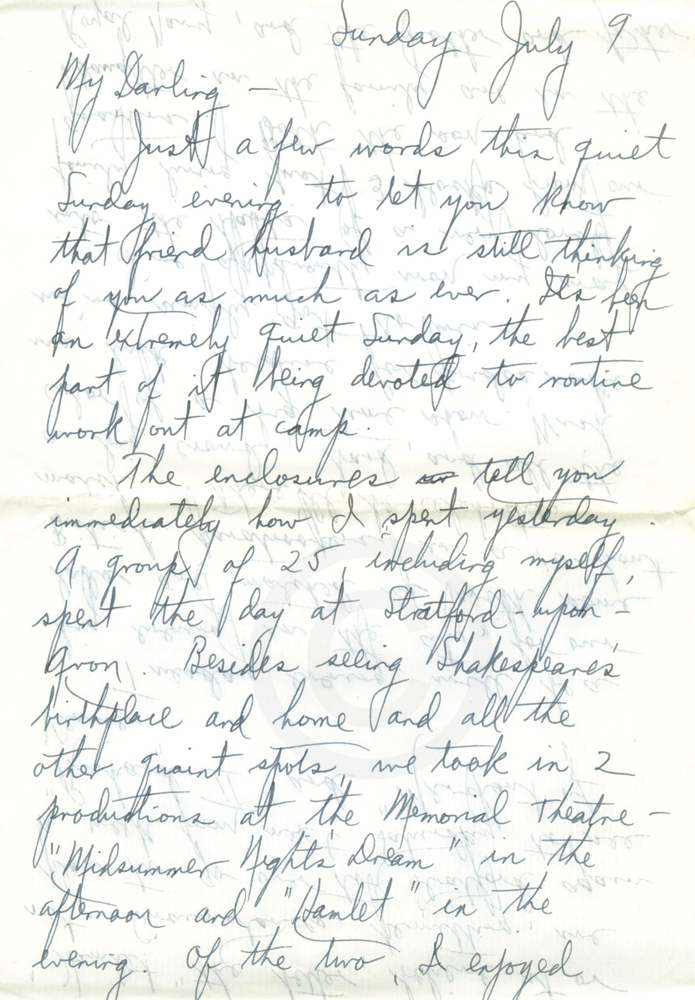 Sunday July 9
My Darling —
Just a few words this quiet
Sunday evening to let you know
that friend husband is still thinking
of you as much as ever. Its been
an extremely quiet Sunday, the best
part of it being devoted to routine
work out at camp.
The enclosures tell you
immediately how I spent yesterday.
A group of 25, including myself,
spent the day at Stratford-upon-
Avon. Besides seeing Shakespeares'
birthplace and home and all the
other quaint spots, we took in 2
productions at the Memorial Theatre —
"Midsummer Nights Dream" in the
afternoon and "Hamlet" in the
evening. Of the two, I enjoyed